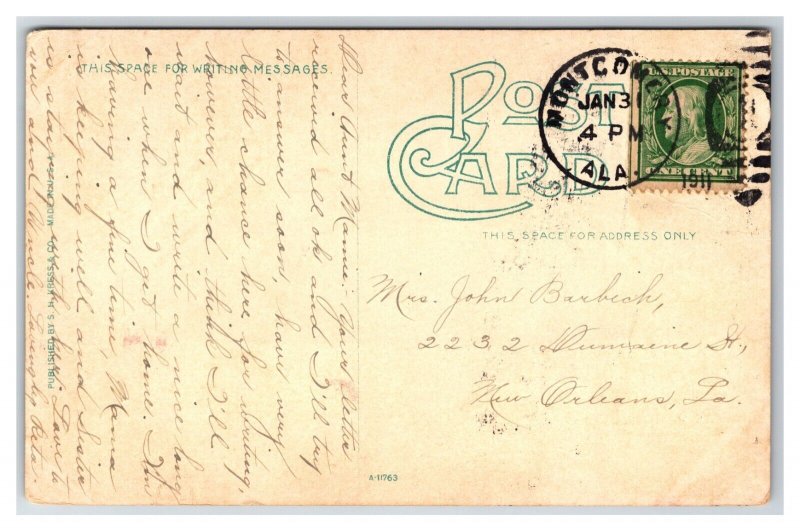 THIS SPACE FOR WRITING MESSAGES.
POST
CARD
MONTGOMERY
JAN 31
4 PM
ALA.
1911
U.S. POSTAGE
ONE CENT
THIS SPACE FOR ADDRESS ONLY
Mrs. John Barbich,
2232 Dumaine St.,
New Orleans, La.
Dear Aunt Mamie: Your letter
recieved all ok and I'll try
to answer soon, have very
little chance here for writing,
however, and think I'll
wait and write a nice long
one when I get home. I'm
having a fine time, Mama
is keeping well and Sister
is staying with her. Love to
you and Uncle. Lovingly Rita.
PUBLISHED BY S. H. KRESS & CO. MADE IN U.S.A.
A-11763